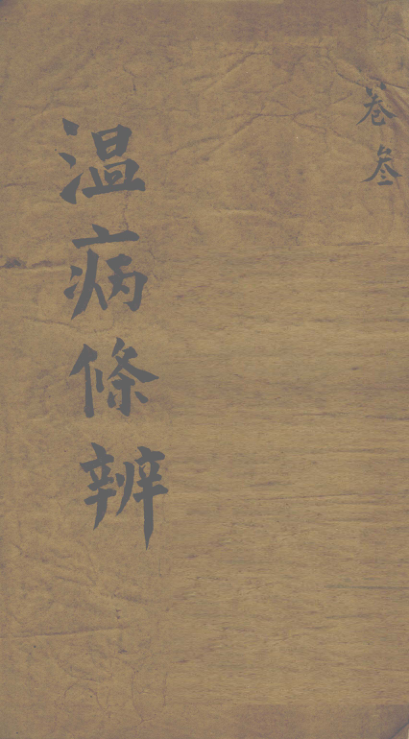 卷叁
温病條辨